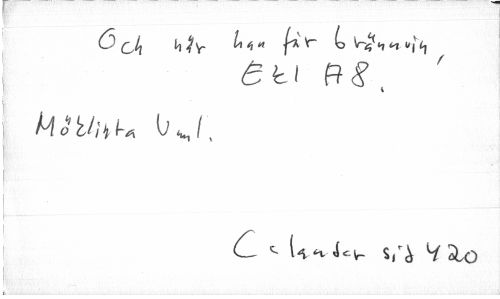 Och när han får brännvin,
Ekl A8.
Möklinta Vml.
Celander sid 420